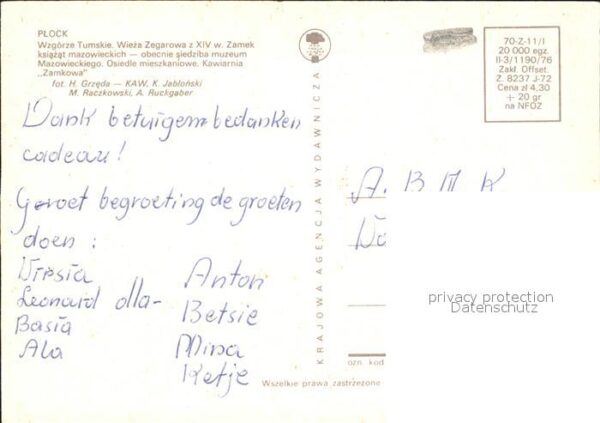 PŁOCK
Wzgórze Tumskie. Wieża Zegarowa z XIV w. Zamek
książąt mazowieckich — obecnie siedziba muzeum
Mazowieckiego. Osiedle mieszkaniowe. Kawiarnia
„Zamkowa”
fot. H. Grzęda — KAW, K. Jabłoński
M. Raczkowski, A. Ruckgaber
Dank betuigem bedanken
cadeau!
Groet begroeting de groeten
doen :
Urrsia
Leonard olla-
Basia
Ala
Anton
Betsie
Mina
Ketje
KRAJOWA AGENCJA WYDAWNICZA
70-Z-11/I
20 000 egz.
II-3/1190/76
Zakł. Offset.
Z. 8237 J-72
Cena zł 4,30
+ 20 gr
na NFOZ
A. B M K
privacy protection
Datenschutz
ozn. kod
Wszelkie prawa zastrzeżone